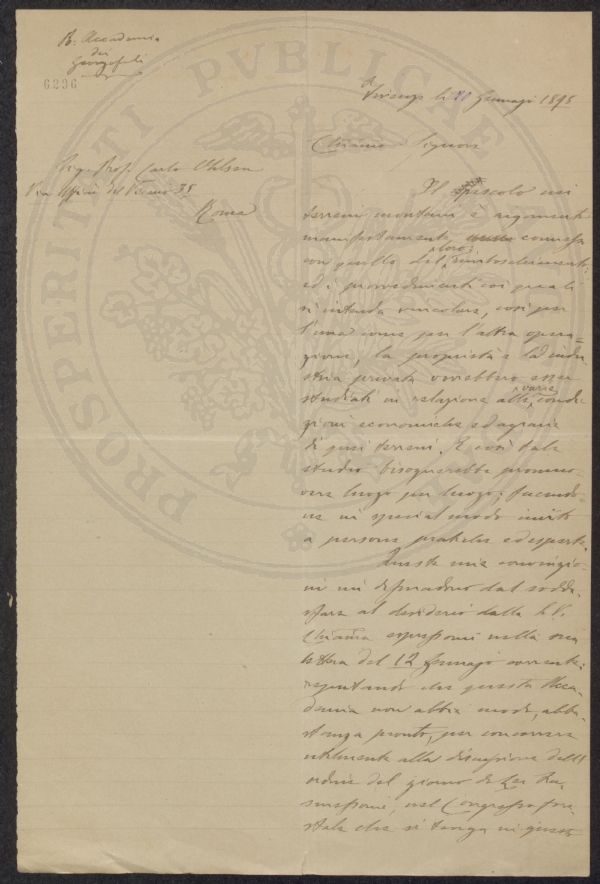 R. Accademia
dei
Georgofili
6296
Firenze li 20 Gennajo 1895
Chiarmo Signore
Sig. Prof. Carlo Ohlsen
Via Uffici del Vicario 35
Roma
Il pascolo nei
terreni montani è argomento
manifestamente connesso
con quello del loro rimboschimento
ed i provvedimenti coi quali
si intenda vincolare, così per
l'una come per l'altra opera-
zione, la proprietà e la indu-
stria privata vorrebbero esser
studiati in relazione alle varie condi-
zioni economiche ed agrarie
di quei terreni. E così tale
studio bisognerebbe promuo-
vere luogo per luogo; facendo-
ne in special modo invito
a persone pratiche ed esperte.
Queste mie convinzio-
ni mi dissuadono dal soddi-
sfare al desiderio dalla S. V.
Chiarma espressomi nella sua
lettera del 12 Gennajo corrente
reputando che questa Acca-
demia non abbia modo, abba-
stanza pronto, per concorrere
utilmente alla discussione dell'
ordine del giorno da Lei tra-
smessomi, nel Congresso fore-
stale che si tenga in questo
PROSPERITATI PUBLICAE